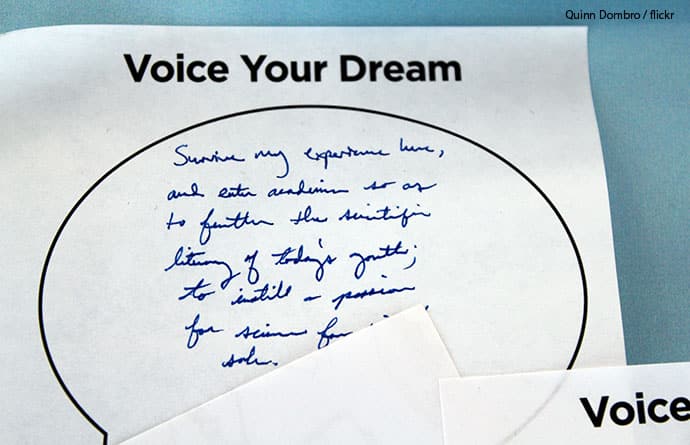 Quinn Dombro / flickr
Voice Your Dream
Survive my experience here,
and enter academia so as
to further the scientific
literacy of today's youth;
to instill a passion
for science for
sake.
Voice